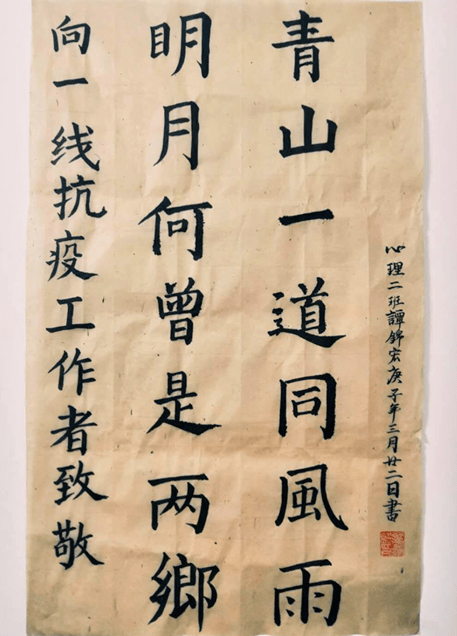 青山一道同風雨
明月何曾是两鄉
向一线抗疫工作者致敬
心理二班譚錦宏庚子年三月廿二日書